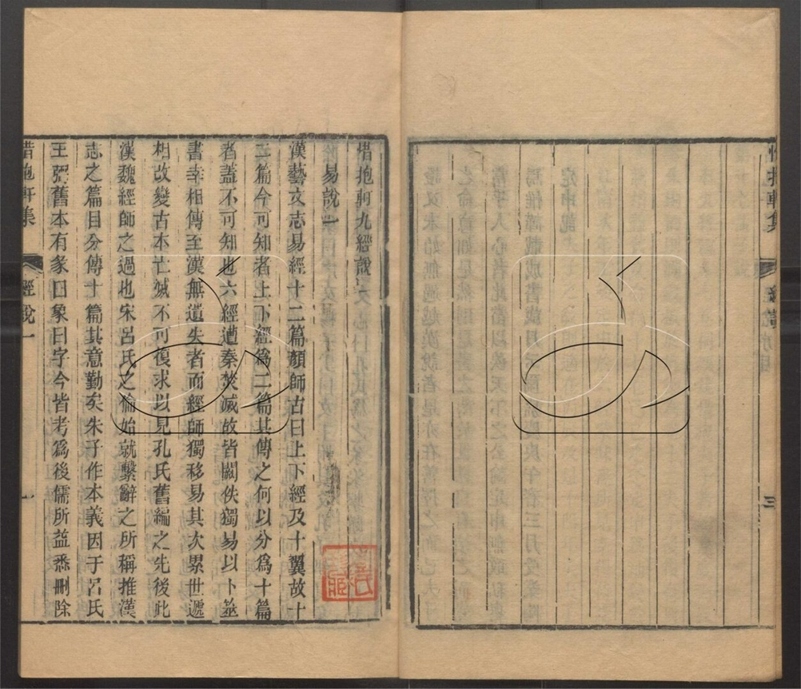 惜抱軒九經說
易說一
漢藝文志易經十二篇顏師古曰上下經及十翼故十
二篇今可知者上下經爲二篇其傳之何以分爲十篇
者蓋不可知也六經遭秦焚滅故皆闕佚獨易以卜筮
書幸相傳至漢無遺失者而經師獨移易其次累世遞
相改變古本亡滅不可復求以見孔氏舊編之先後此
漢魏經師之過也宋呂氏之倫始就繫辭之所稱推漢
志之篇目分傳十篇其意勤矣朱子作本義因于呂氏
王弼舊本有彖曰象曰字今皆考爲後儒所益悉刪除
惜抱軒集
經說一
一